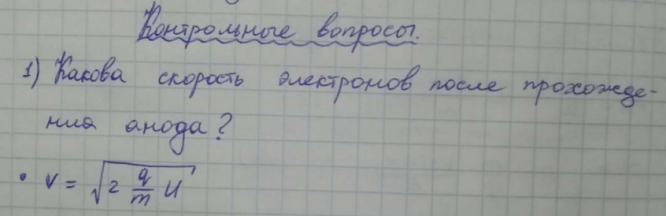 Контрольные вопросы.
1) Какова скорость электронов после прохожде-
ния анода?
• v = √(2 q/m U)